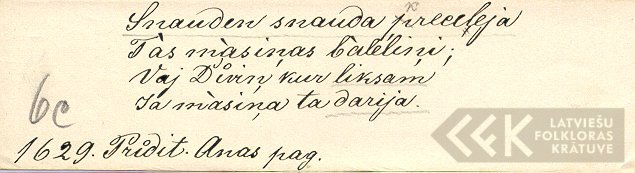 Snauden snauda preceleja
Tàs màsiņas bàleliņi;
Vaj Diviņ kur liksam
Ja màsiņa ta darija.
6c
1629. Prìdit. Anas pag.
LATVIEŠU
FOLKLORAS
KRĀTUVE